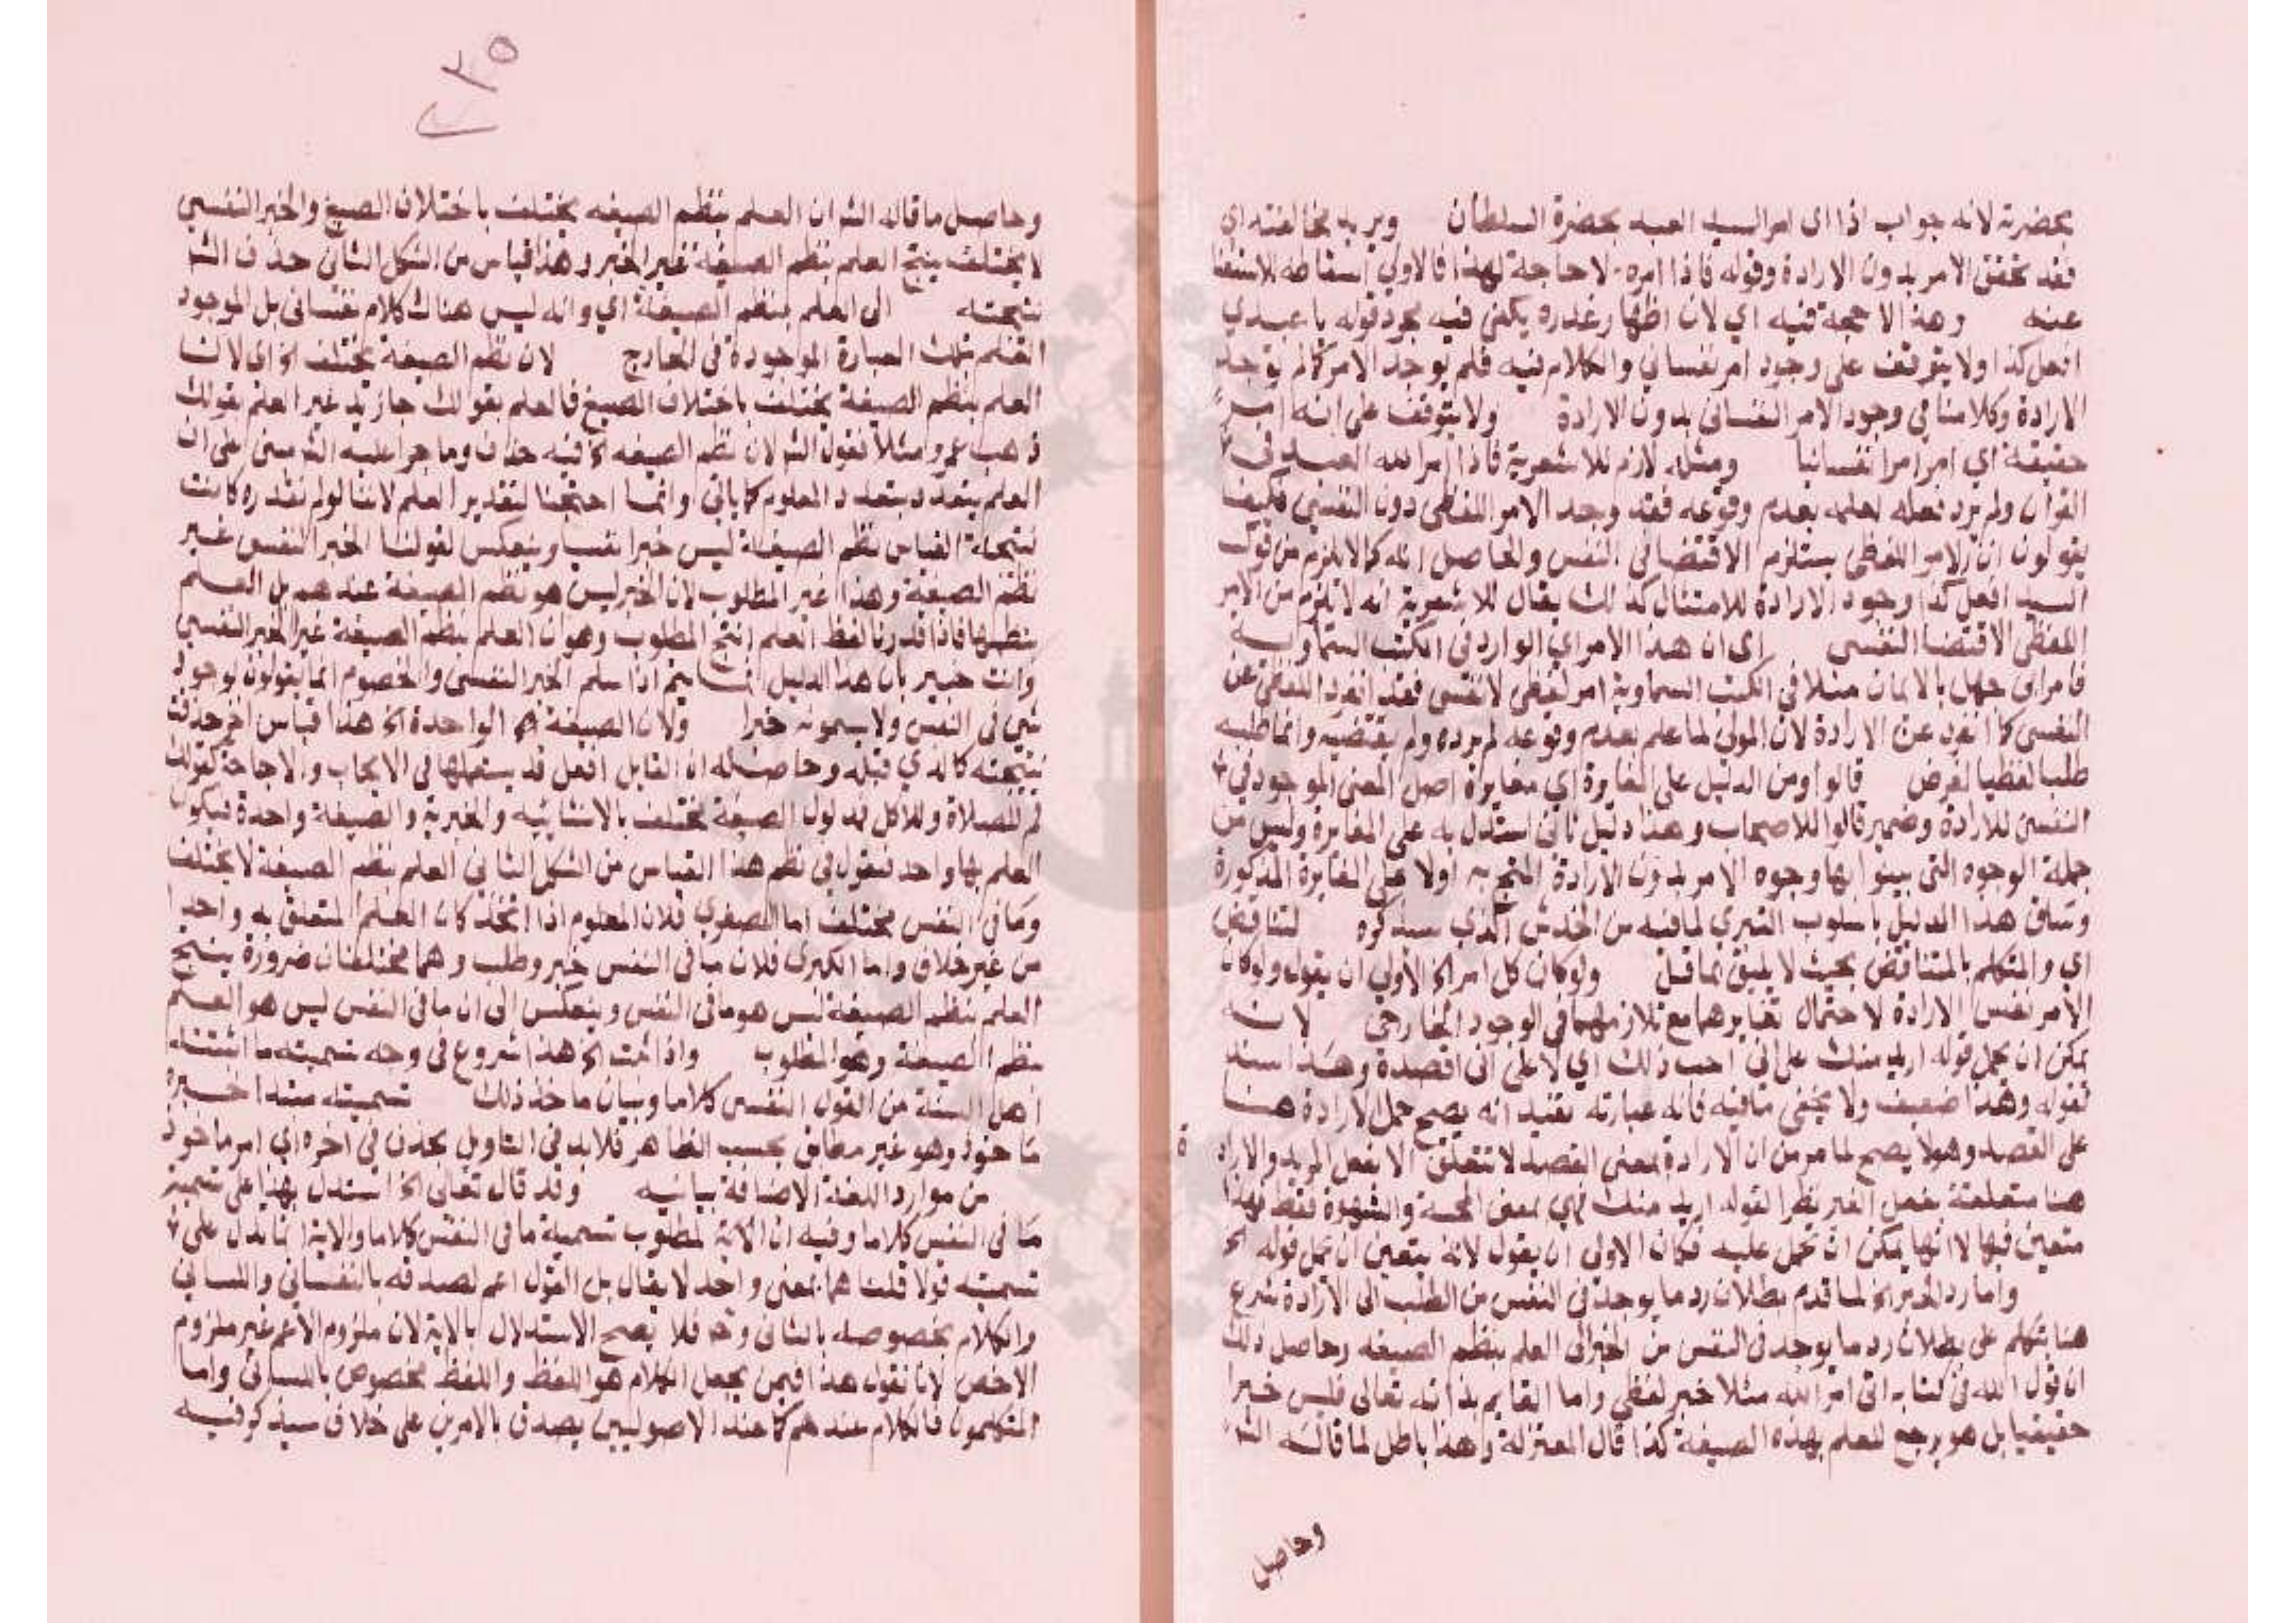 بحضرته لانه جواب اذا اى امر السيد العبد بحضرة السلطان ويريد مخالفته اى
فقد تحقق الامر بدون الارادة وقوله فاذا امره لا حاجة لهذا فالاولى اسقاطه للاستغنا
عنه وهذا لا حجة فيه اي لان اظهار عذره يكفي فيه مجرد قوله يا عبدي
افعل كذا ولا يتوقف على وجود امر نفساني والكلام فيه فلم يوجد الامر كما لم توجد
الارادة وكلامنا في وجود الامر النفسانى بدون الارادة ولا يتوقف على انه امر
حقيقة اي امر امرا نفسانيا ومثله لازم للاشعرية فاذا امر الله العبد في
القران ولم يرد فعله لعلمه بعدم وقوعه فقد وجد الامر اللفظى دون النفسي فكيف
يقولون ان الامر اللفظى يستلزم الاقتضا في النفس والحاصل انه كما لا يلزم من قول
السيد افعل كذا وجود الارادة للامتثال كذلك يقال للاشعرية انه لا يلزم من الامر
اللفظي الاقتضا النفسى اى ان هذا الامر اي الوارد في الكتب السماوية
فامر ابى جهل بالايمان مثلا في الكتب السماوية امر لفظي لا نفسى فقد انفرد اللفظي عن
النفسى كما انفرد عن الارادة لان المولى لما علم بعدم وقوعه لم يرده ولم يقتضيه وانما طلبه
طلبا لفظيا لغرض قالوا ومن الدليل على المغايرة اي مغايرة اصل المعنى الموجود في
النفس للارادة وضمير قالوا للاصحاب وهذا دليل ثانى استدل به على المغايرة وليس من
جملة الوجوه التى بينوا بها وجوه الامر بدون الارادة المحتج به اولا على المغايرة المذكورة
وساق هذا الدليل باسلوب التبري لما فيه من الخدش الذي سيذكره لتناقض
اي والتكلم بالمتناقض بحيث لا يليق بعاقل ولو كان كل امر الخ الاولى ان يقول ولو كان
الامر نفس الارادة لاحتمال تغايرهما مع تلازمهما في الوجود الخارجى لانه
يمكن ان يحمل قوله اريد منك على انى احب ذلك اي لا على انى اقصده وهذا سند
لقوله وهذا ضعيف ولا يخفى ما فيه فانه عبارته تفيد انه يصح حمل الارادة هنا
على القصد وهو لا يصح لما مر من ان الارادة بمعنى القصد لا تتعلق الا بفعل المريد والارادة
هنا متعلقة بفعل الغير نظرا لقوله اريد منك فهي بمعنى المحبة والشهوة فقط فهذا
متعين فيها لا انها يمكن ان تحمل عليه فكان الاولى ان يقول لانه يتعين ان يحمل قوله الخ
واما رد الخبر الخ لما قدم بطلان رد ما يوجد في النفس من الطلب الى الارادة شرع
هنا يتكلم على بطلان رد ما يوجد في النفس من الخبر الى العلم بنظم الصيغه وحاصل ذلك
ان قول الله في كتابه اتى امر الله مثلا خبر لفظي واما القايم بذاته تعالى فليس خبرا
حقيقيا بل هو يرجع للعلم بهذه الصيغة كذا قال المعتزلة وهذا باطل لما قاله الش
وحاصل
وحاصل ما قاله الش ان العلم بنظم الصيغه يختلف باختلاف الصيغ والخبر النفسي
لا يختلف ينتج العلم بنظم الصيغة غير الخبر وهذا قياس من الشكل الثانى حذف الش
نتيجته الى العلم بنظم الصيغة اي وانه ليس هناك كلام نفسانى بل الموجود
العلم بتلك العبارة الموجودة فى الخارج لان نظم الصيغة يختلف الخ اى لان
العلم بنظم الصيغة يختلف باختلاف الصيغ فالعلم بقولك جا زيد غير العلم بقولك
ذهب عمرو مثلا فقول الش لان نظم الصيغه الخ فيه حذف وما جرا عليه الش مبنى على ان
العلم يتعدد بتعدد المعلوم كما ياتى وانما احتجنا لتقدير العلم لاننا لو لم نقدره كانت
نتيجة القياس نظم الصيغة ليس خبرا نفسيا وينعكس لقولنا الخبر النفسى غير
نظم الصيغة وهذا غير المطلوب لان الخبر ليس هو نظم الصيغة عندهم بل العلم
بنظمها فاذا قدرنا لفظ العلم انتج المطلوب وهو ان العلم بنظم الصيغة غير الخبر النفسي
وانت خبير بان هذا الدليل انما يتم اذا سلم الخبر النفسى والخصوم انما يقولون بوجود
شى في النفس ولا يسمونه خبرا ولان الصيغة الواحدة الخ هذا قياس اخر حذفت
نتيجته كالذي قبله وحاصله ان القايل افعل قد يستعملها في الايجاب والاباحة كقولك
قم للصلاة وللاكل فمدلول الصيغة مختلف بالانشائيه والخبرية والصيغة واحدة فيكون
العلم بها واحد فنقول في نظم هذا القياس من الشكل الثاني العلم بنظم الصيغة لا يختلف
وما في النفس مختلف اما الصغرى فلان المعلوم اذا اتحد كان العلم المتعلق به واحدا
من غير خلاف واما الكبرى فلان ما في النفس خبر وطلب وهما مختلفان ضرورة ينتج
العلم بنظم الصيغة ليس هو ما في النفس وينعكس الى ان ما في النفس ليس هو العلم
بنظم الصيغة وهو المطلوب واذا ثبت الخ هذا شروع في وجه تسميته ما اثبته
اهل السنة من القول النفسى كلاما وبيان ماخذ ذلك تسميته مبتدا خبره
ماخوذ وهو غير مطابق بحسب الظاهر فلا بد في التاويل بحذف في اخره اي امر ماخوذ
من موارد اللغة الاضافة بيانيه وقد قال تعالى الخ استدل بهذا على تسمية
ما فى النفس كلاما وفيه ان الاية لمطلوب تسمية ما في النفس كلاما والاية انما تدل على
تسميته قولا قلنا هما بمعنى واحد لا يقال بل القول اعم لصدقه بالنفسانى واللسانى
والكلام بخصوصه بالثانى وح فلا يصح الاستدلال بالاية لان ملزوم الاعم غير ملزوم
الاخص لانا نقول هذا فيمن يجعل الكلام هو اللفظ واللفظ مخصوص باللسانى واما
المتكلمون فالكلام عندهم كما عند الاصوليين يصدق بالامرين على خلاف سيذكر فيه